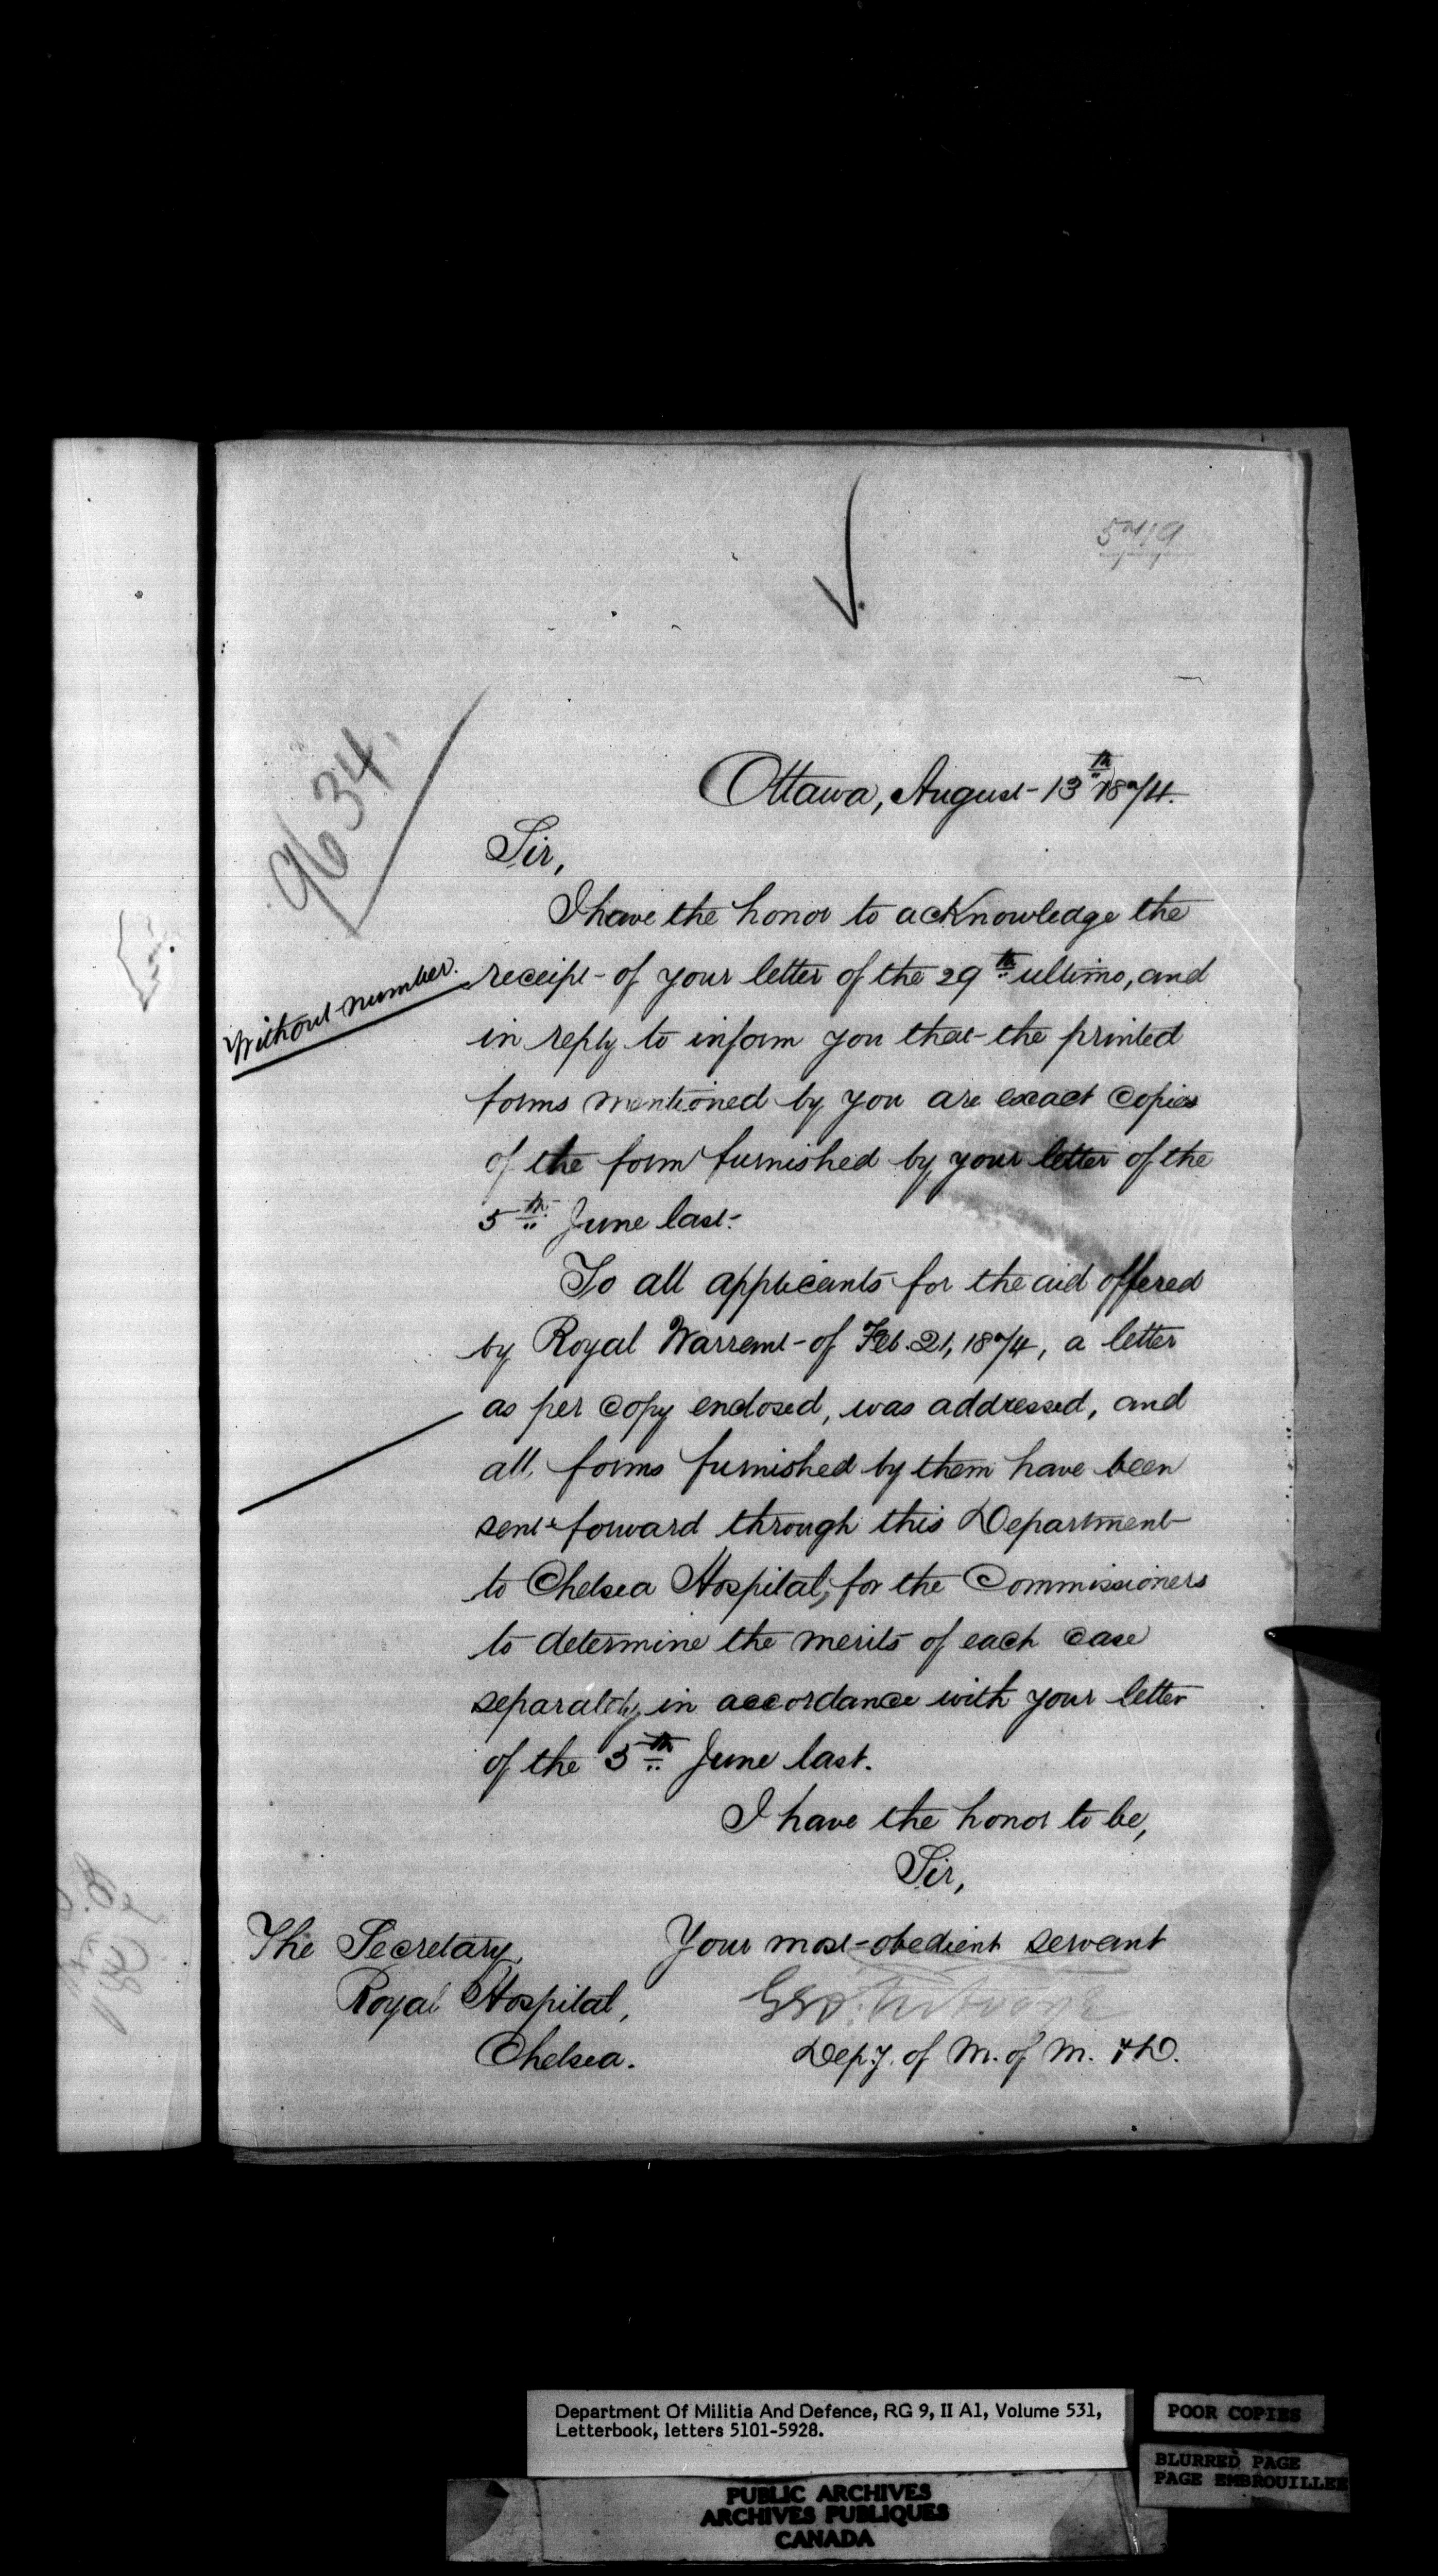 5719
9634.
Ottawa, August 13th 1874.
Sir,
I have the honor to acknowledge the
Without number.
receipt of your letter of the 29th ultimo, and
in reply to inform you that the printed
forms mentioned by you are exact copies
of the form furnished by your letter of the
5th June last.
To all applicants for the aid offered
by Royal Warrant of Feb. 21, 1874, a letter
as per copy enclosed, was addressed, and
all forms furnished by them have been
sent forward through this Department
to Chelsea Hospital, for the Commissioners
to determine the merits of each case
separately, in accordance with your letter
of the 5th June last.
I have the honor to be,
Sir,
Your most obedient servant
Geo.
Depy. of M. of M. & D.
The Secretary,
Royal Hospital,
Chelsea.
Department Of Militia And Defence, RG 9, II A1, Volume 531,
Letterbook, letters 5101-5928.
POOR COPIES
BLURRED PAGE
PAGE EMBROUILLEE
PUBLIC ARCHIVES
ARCHIVES PUBLIQUES
CANADA